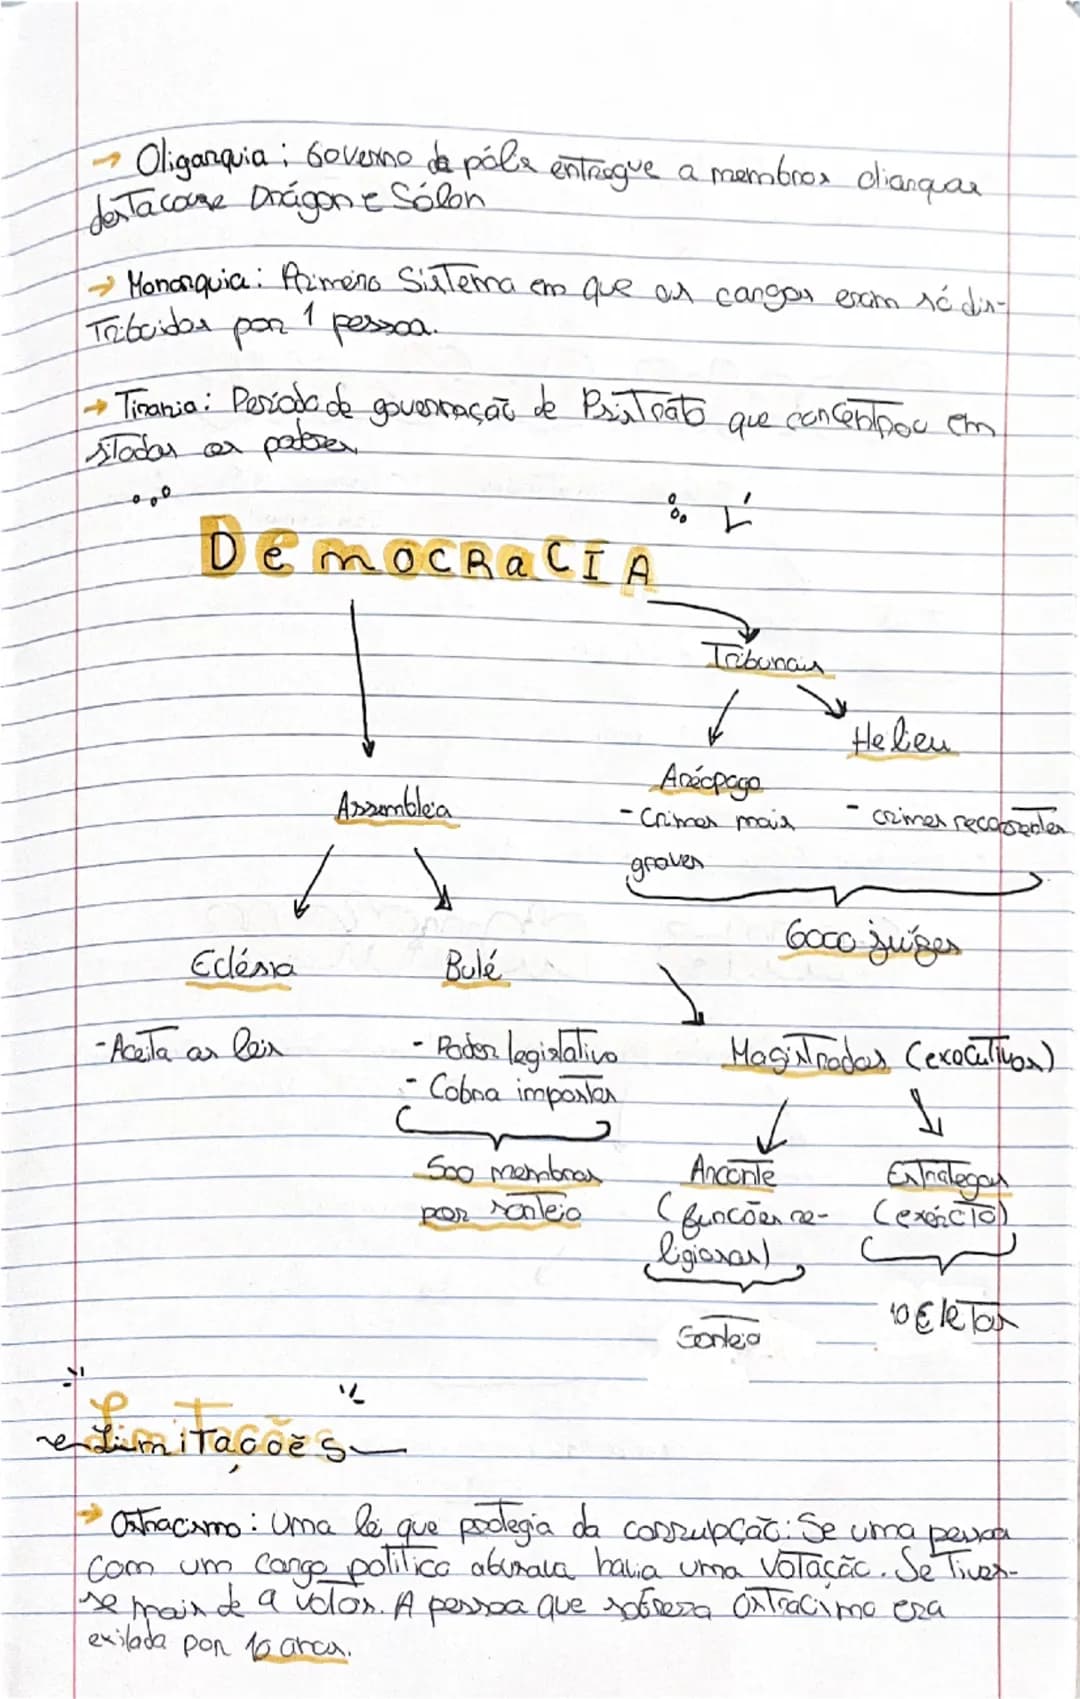 → Oligarquia: Governo da pólis entregue a membros
destacasse Drágon e Sólon
→ Monarquia: Primeiro Sistema em que os cargos eram só dis-
tribuidos por 1 pessoa.
→ Tirania: Periodo de governação de Psistrato que concentrou em
si todos os poderes
DemocRaCIA
Tribunais
Helieu
Aréopago
Assembleia
- Crimes mais
- crimes
graves
6000 juízes
Eclésia
Bulé
- Aceita as leis
- Poder legislativo
Magistrados (executivos)
- Cobra impostos
500 membros
Arconte
Estrategas
por sorteio
(funções re-
(exército)
ligiosas)
10 Eletos
Sorteio
Limitações
→ Ostracismo: Uma lei que protegia da corrupção: Se uma pessoa
com um cargo politico abusava havia uma votação. Se tives-
se mais de votos. A pessoa que sofresa Ostracismo era
exilada por 10 anos.